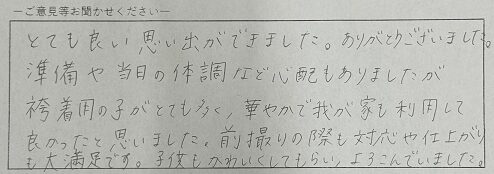 ーご意見等お聞かせくださいー
とても良い思い出ができました。ありがとうございました。
準備や当日の体調など心配もありましたが
袴着用の子がとても多く、華やかで我が家も利用して
良かったと思いました。前撮りの際も対応や仕上がり
も大満足です。子供もかわいくしてもらい、よろこんでいました。